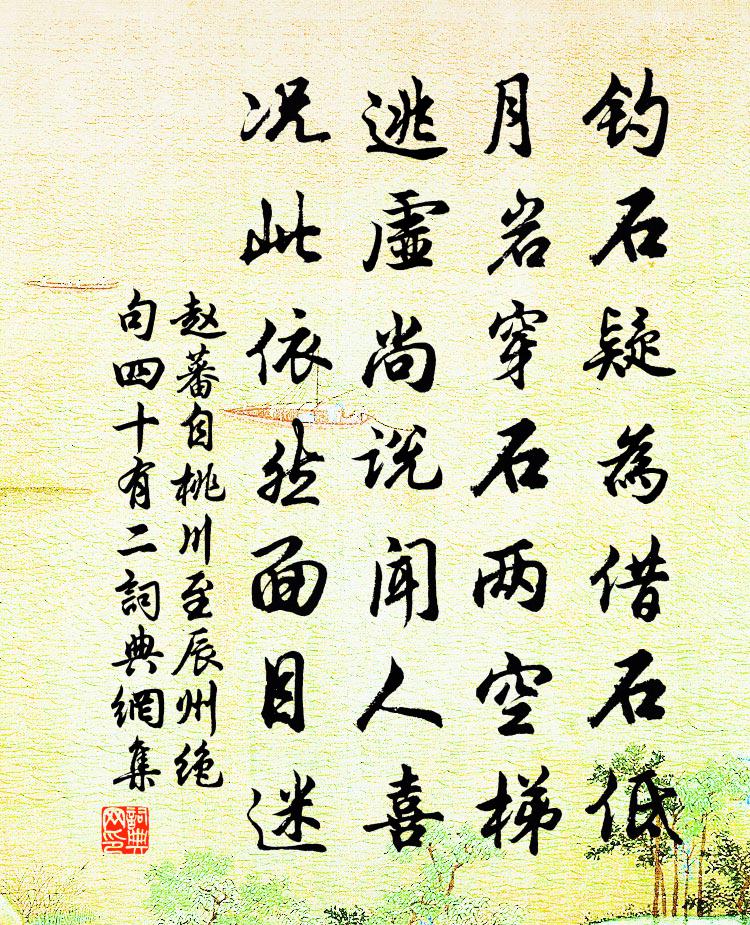 钓石疑为借石低
月岩穿石两空梯
逃虚尚说闻人喜
况此依然面目迷
赵蕃自桃川至辰州绝
句四十有二詞典網集
詞典
网印